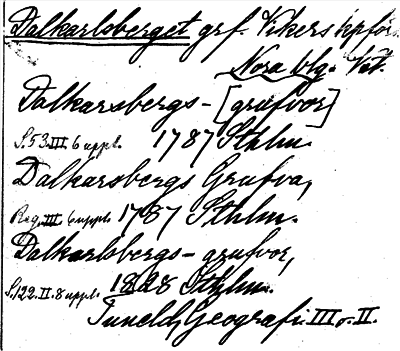 Dalkarlsberget grf. Vikers kpför.
Nora blg. Vst.
Dalkarsbergs-[grufvor]
S.53.III.6 uppl. 1787 Sthlm.
Dalkarsbergs Grufva,
Reg. III 6 uppl. 1787 Sthlm.
Dalkarlsbergs-grufvor,
S.122.II.8 uppl. 1828 Sthlm.
Tuneld, Geografi. III o. II.